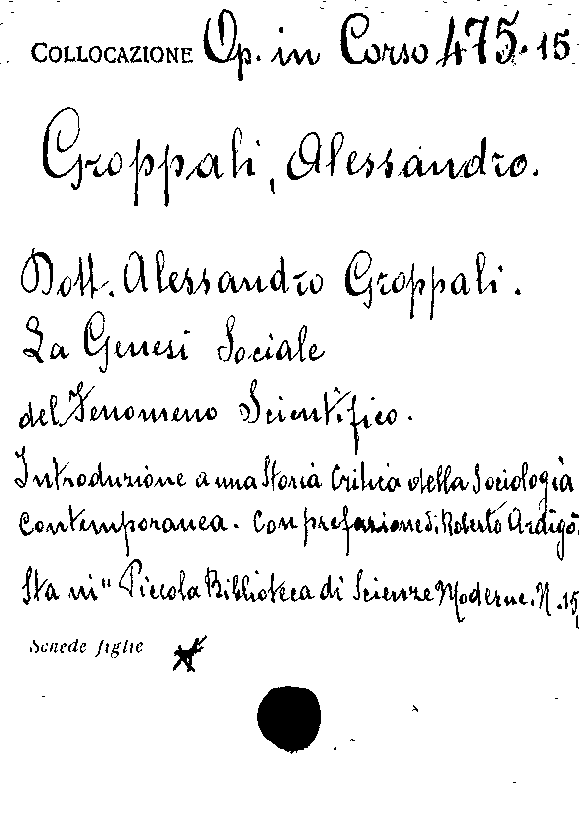 COLLOCAZIONE Op. in Corso 475.15
Groppali, Alessandro.
Dott. Alessandro Groppali.
La Genesi Sociale
del Fenomeno Scientifico.
Introduzione a una Storia Critica della Sociologia
Contemporanea. Con prefazione di Roberto Ardigò.
Sta in "Piccola Biblioteca di Scienze Moderne. N. 15
Schede figlie